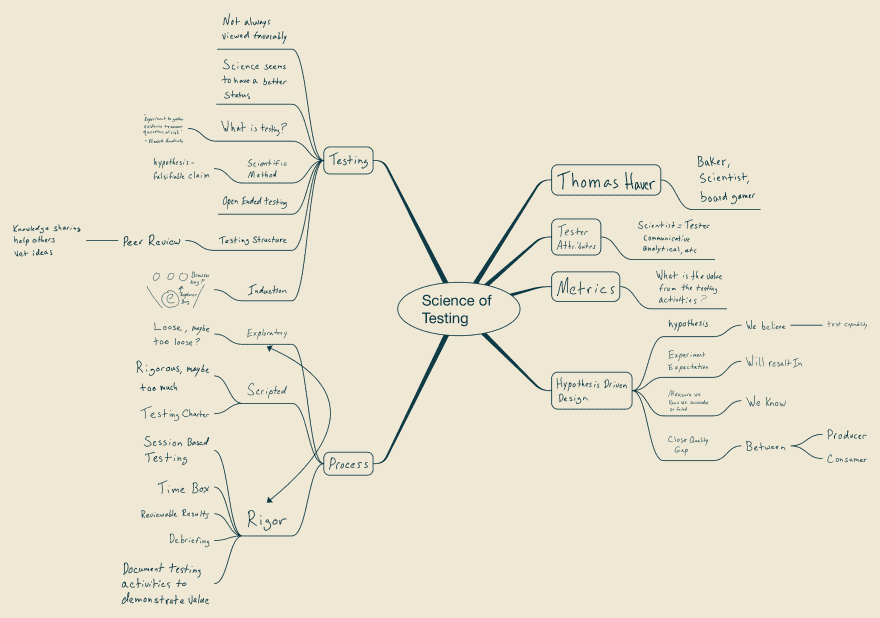 Science of
Testing
Testing
Not always
viewed favorably
Science seems
to have a better
status
What is testing?
Scientific
Method
hypothesis -
falsifiable claim
Open Ended testing
Testing Structure
Peer Review
Knowledge sharing
help others
vet ideas
Induction
Process
Exploratory
Loose, maybe
too loose?
Scripted
Rigorous, maybe
too much
Testing Charter
Rigor
Session Based
Testing
Time Box
Reviewable Results
Debriefing
Document testing
activities to
demonstrate value
Thomas Haver
Baker,
Scientist,
board gamer
Tester
Attributes
Scientist = Tester
Communicative
analytical, etc
Metrics
What is the value
from the testing
activities?
Hypothesis Driven
Design
hypothesis
We believe
test capability
Experiment
Expectation
Will result In
Measure we
We Know
Close Quality
Gap
Between
Producer
Consumer